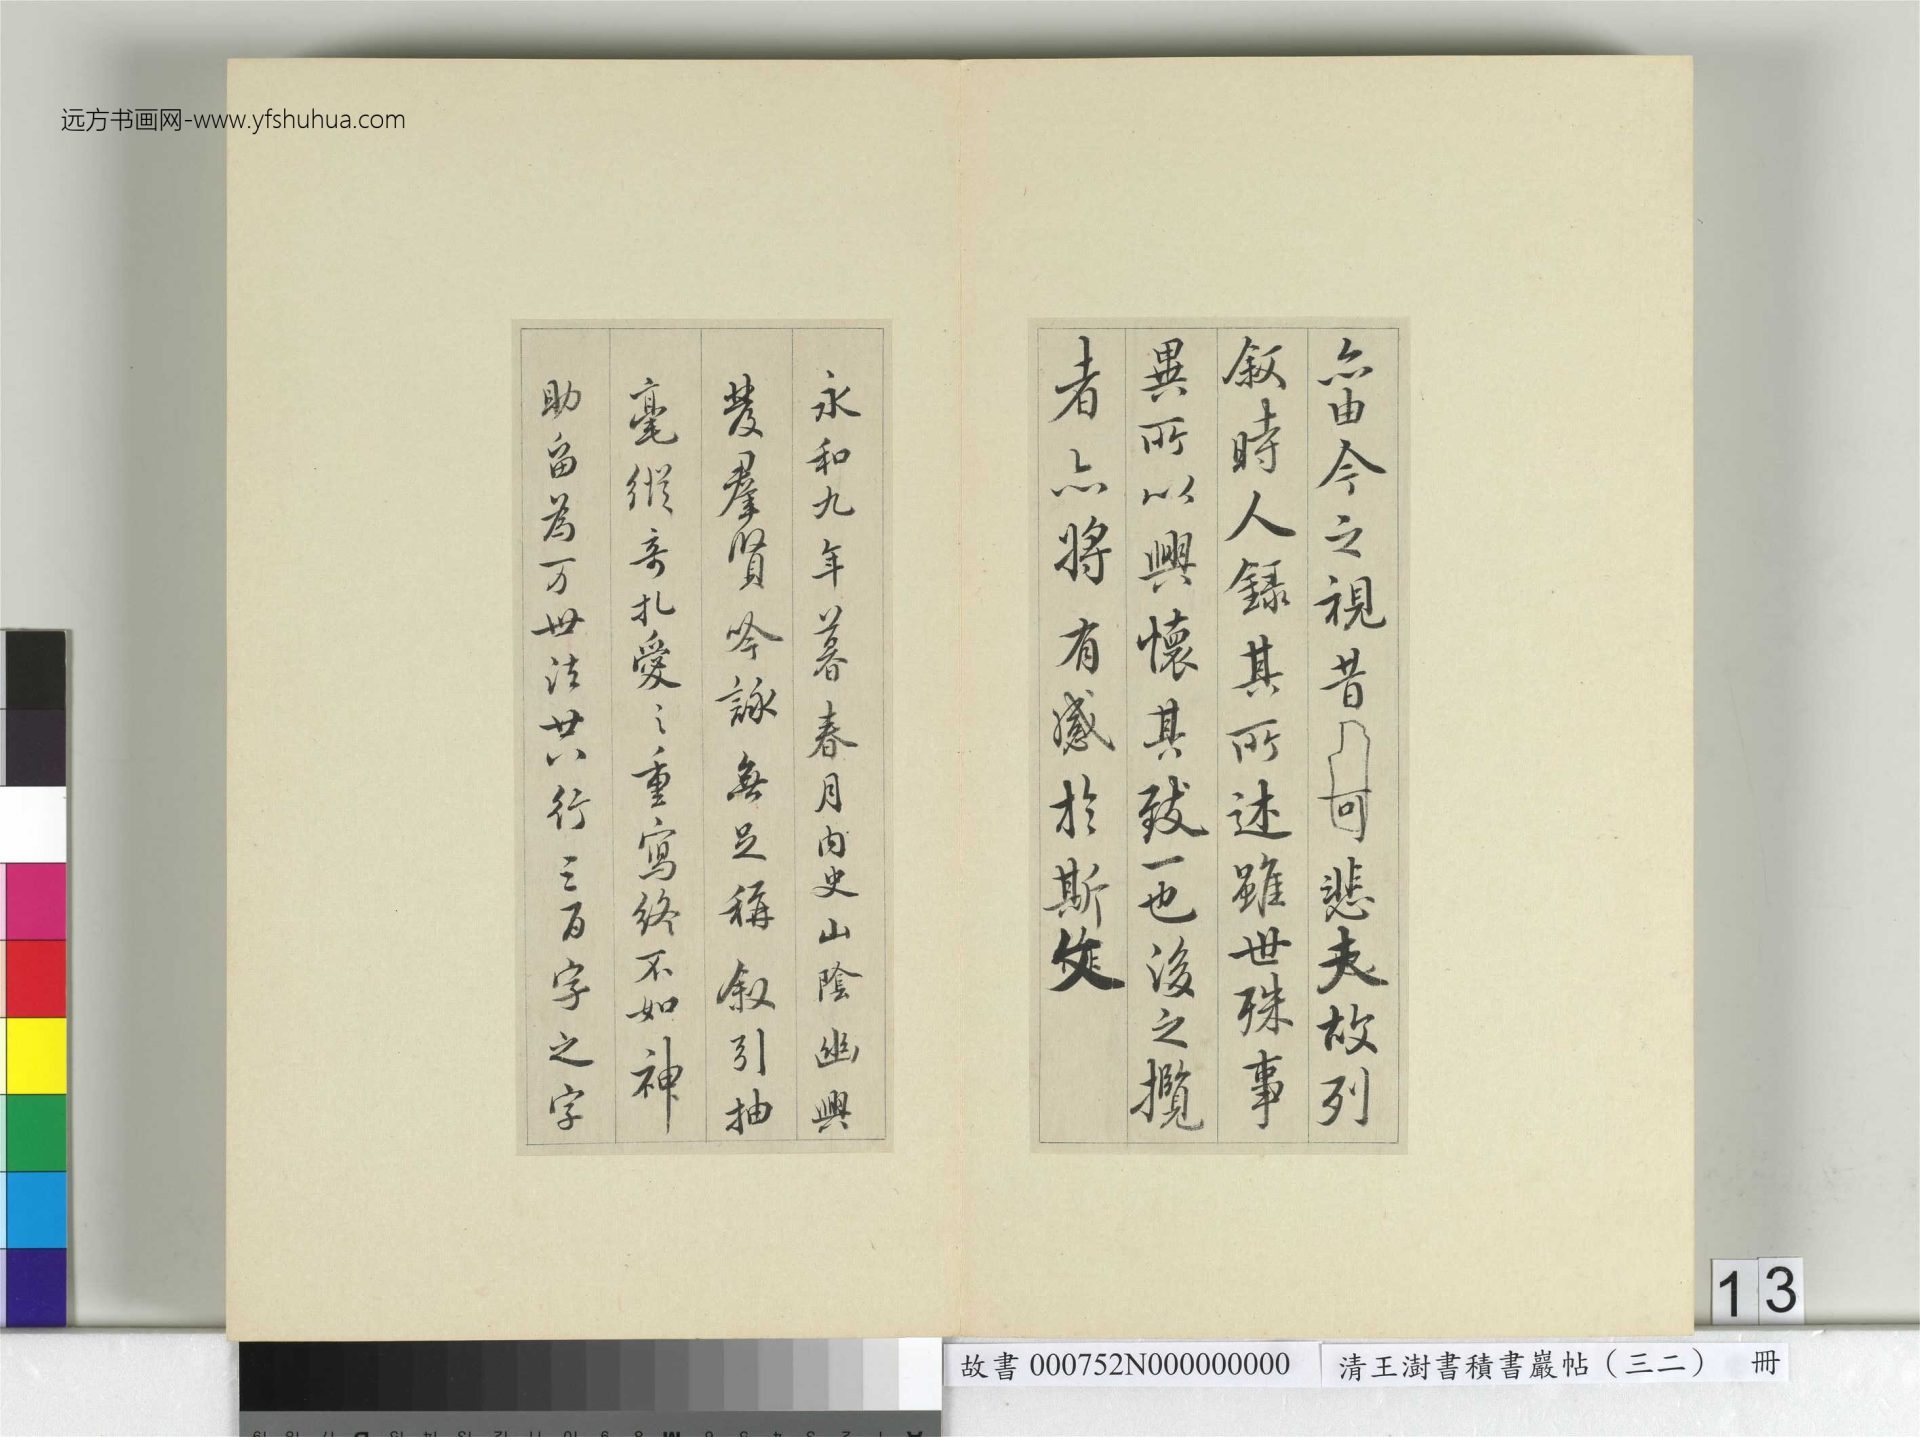 远方书画网-www.yfshuhua.com
亦由今之視昔可悲夫故列
叙時人録其所述雖世殊事
異所以興懷其致一也後之攬
者亦將有感於斯文
永和九年暮春月内史山陰幽興
發羣賢吟詠無足稱叙引抽
毫縱奇札愛之重寫終不如神
助留為万世法廿八行三百字之字
13
故書 000752N000000000
清王澍書積書巖帖（三二） 冊